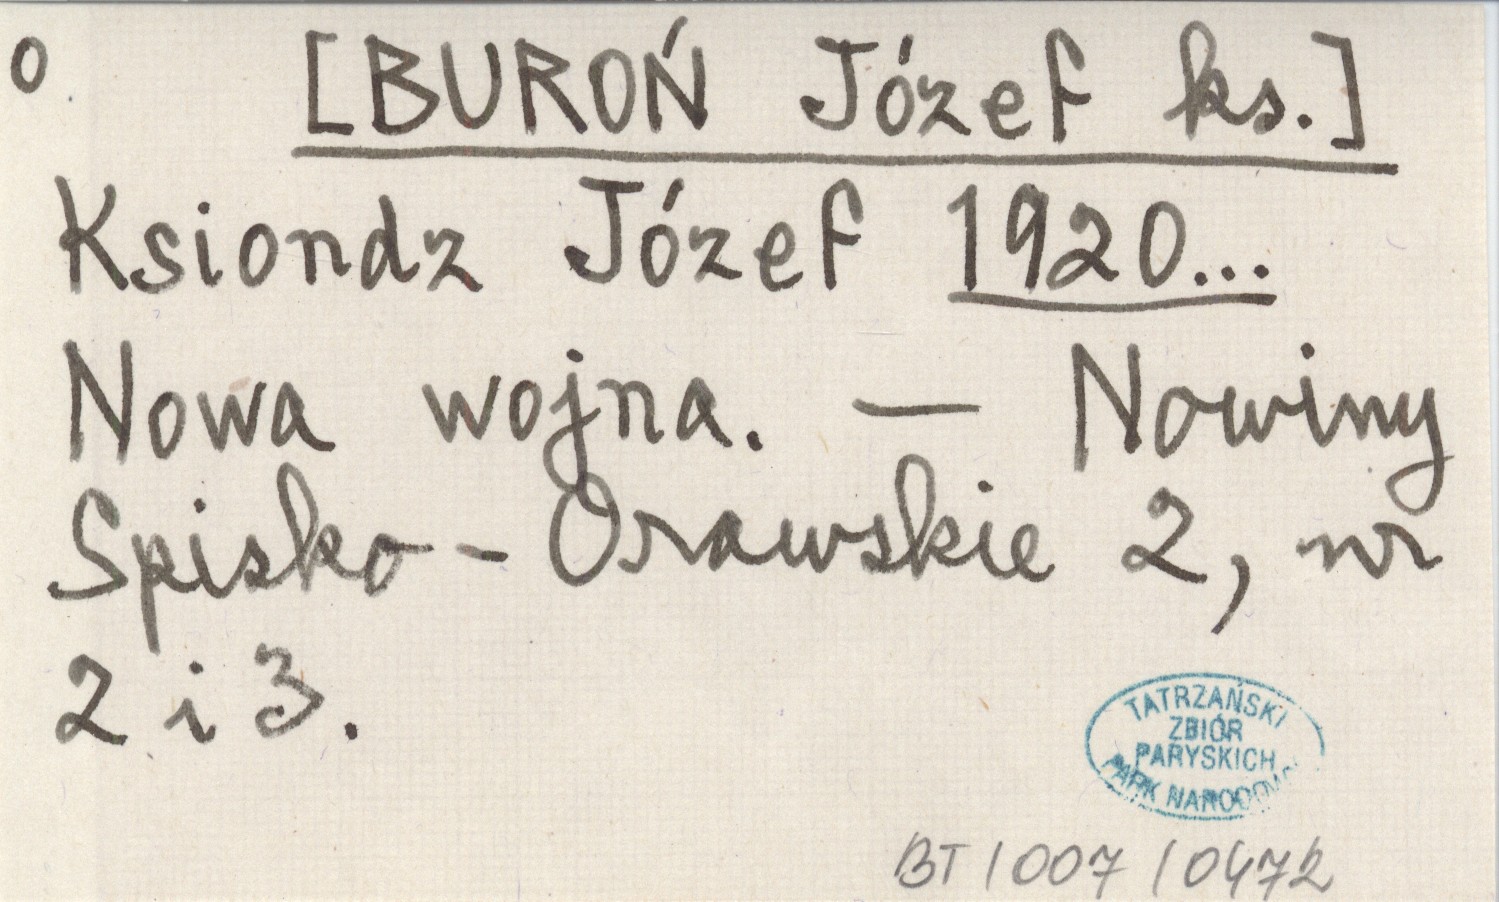 o
[BUROŃ Józef ks.]
Ksiondz Józef 1920...
Nowa wojna. — Nowiny
Spisko-Orawskie 2, nr
2 i 3.
TATRZAŃSKI
ZBIÓR
PARYSKICH
PARK NARODOWY
BT/007/0472